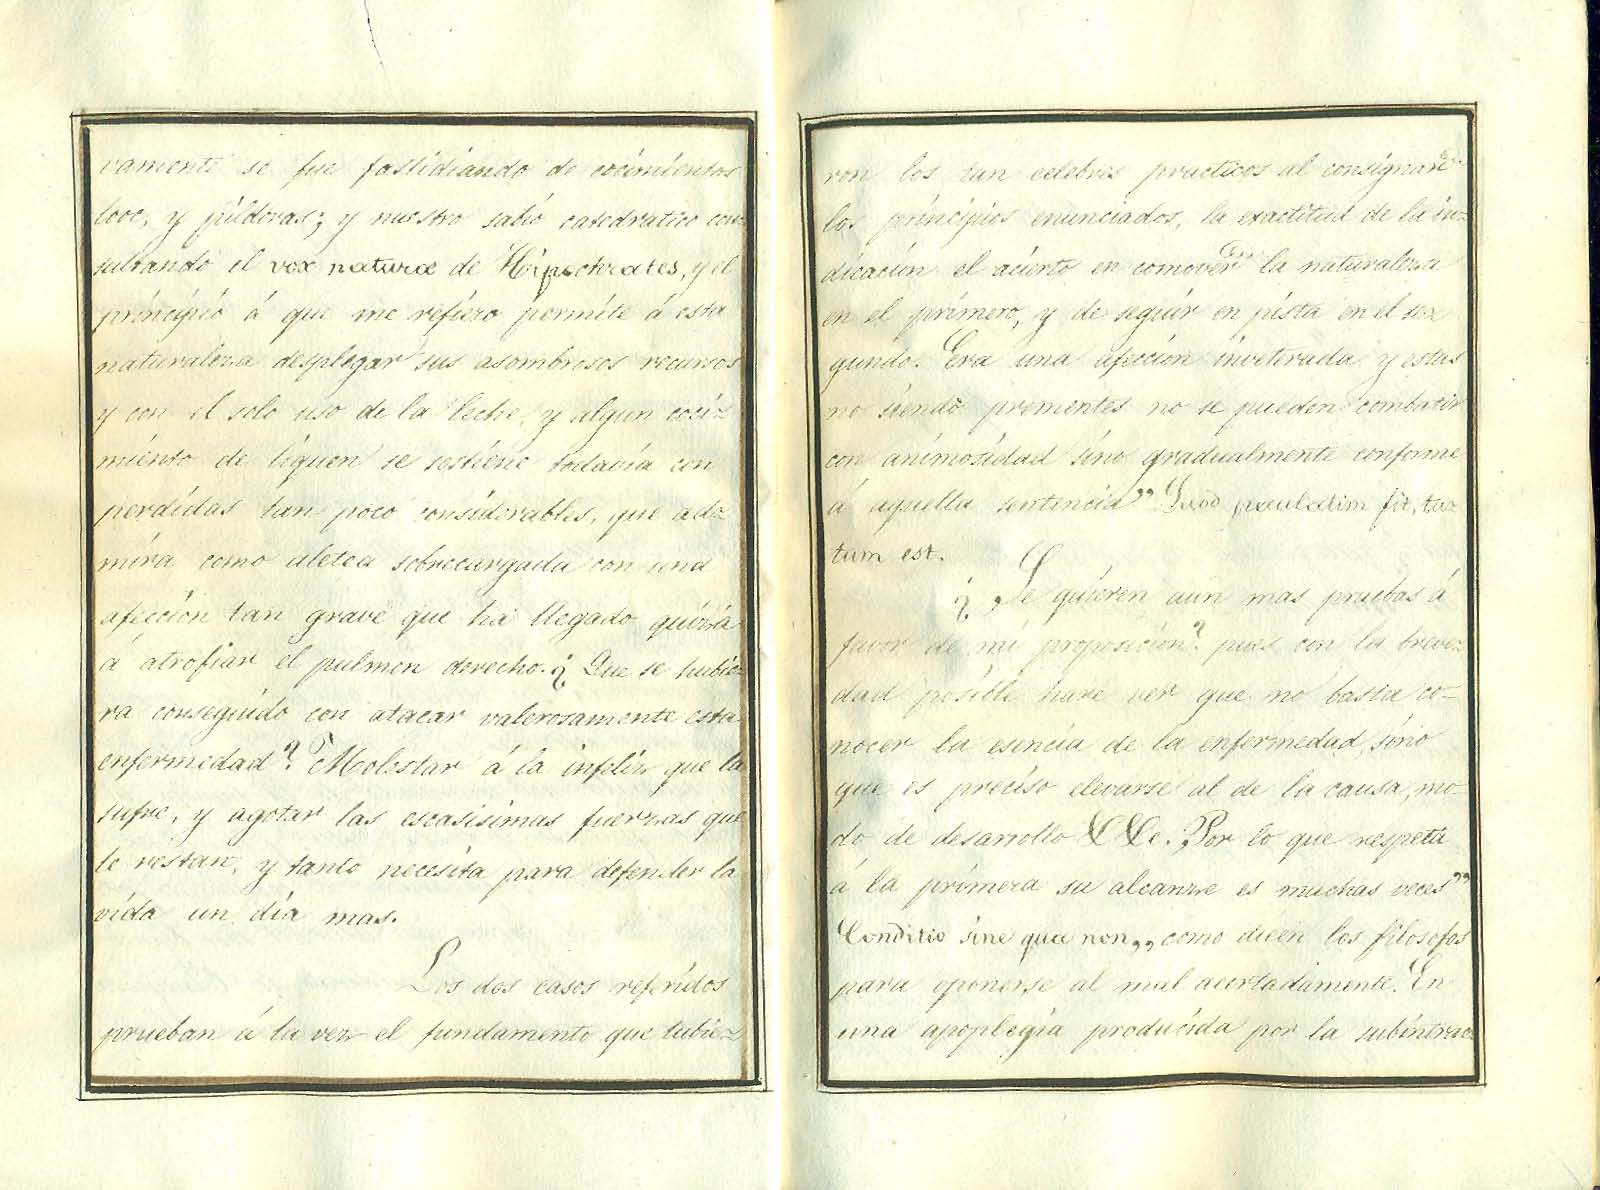 vamente se fue fastidiando de cocimientos
looc, y pildoras; y nuestro sabio catedratico con-
sultando el vox naturæ de Hipochrates, y el
principio á que me refiero permite á esta
naturaleza desplegar sus asombrosos recursos
y con el solo uso de la leche, y algun coci-
miento de liquen se sostiene todavia con
perdidas tan poco considerables, que ad-
mira como aletea sobrecargada con una
afeccion tan grave que ha llegado quizá
á atrofiar el pulmon derecho. ¿Que se hubie-
ra conseguido con atacar valerosamente esta
enfermedad? Molestar á la infeliz que la
sufre, y agotar las escasisimas fuerzas que
le restan, y tanto necesita para defender la
vida un dia mas.
Los dos casos referidos
prueban á la vez el fundamento que tubie-
ron los tan celebres practicos al consignar
los principios enunciados, la exactitud de la in-
dicacion el acierto en comover la naturaleza
en el primero, y de seguir en pista en el se-
gundo. Era una afeccion inveterada y estas
no siendo prementes no se pueden combatir
con animosidad sino gradualmente conforme
á aquella sentencia" Quod paulatim fit, tu-
tum est.
¿Se quieren aun mas pruebas á
favor de mi proposicion? pues con la breve-
dad posible hare ver que no basta co-
nocer la esencia de la enfermedad, sino
que es preciso elevarse al de la causa, mo-
do de desarrollo &&e. Por lo que respeta
á la primera su alcanze es muchas veces"
Conditio sine qua non,, como dicen los filosofos
para oponerse al mal acertadamente. En
una apoplegia producida por la subintrac-